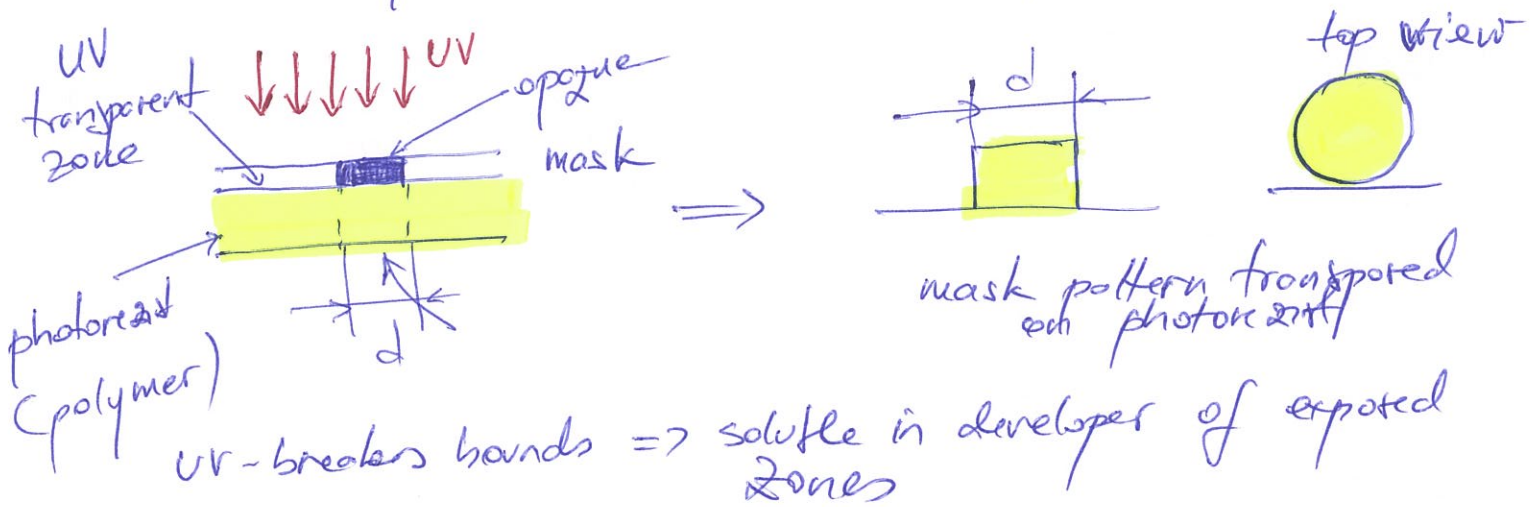 UV
transparent
zone
UV
opaque
mask
photorezist
(polymer)
d
=>
d
top view
mask pattern transpored
on photorezist
uv-breakes bounds => soluble in developer of exposed
zones